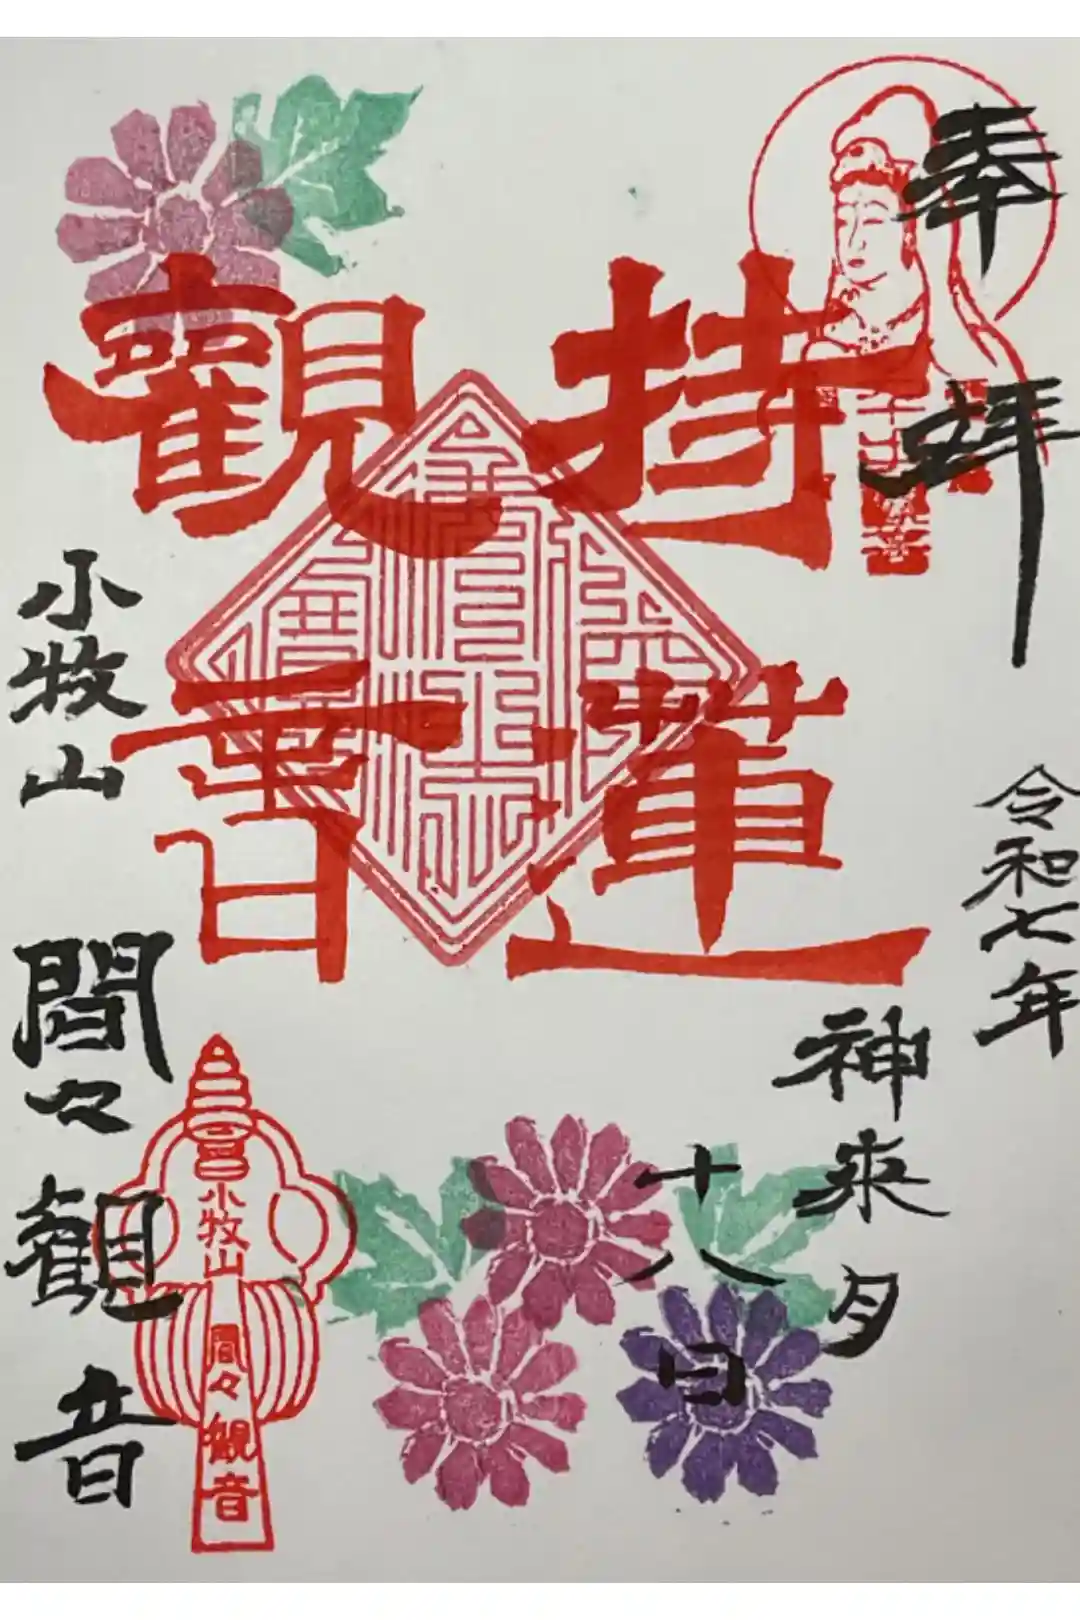 奉拝
令和七年
神来月
十八日
持蓮
観音
小牧山
間々観音
小牧山
間々観音